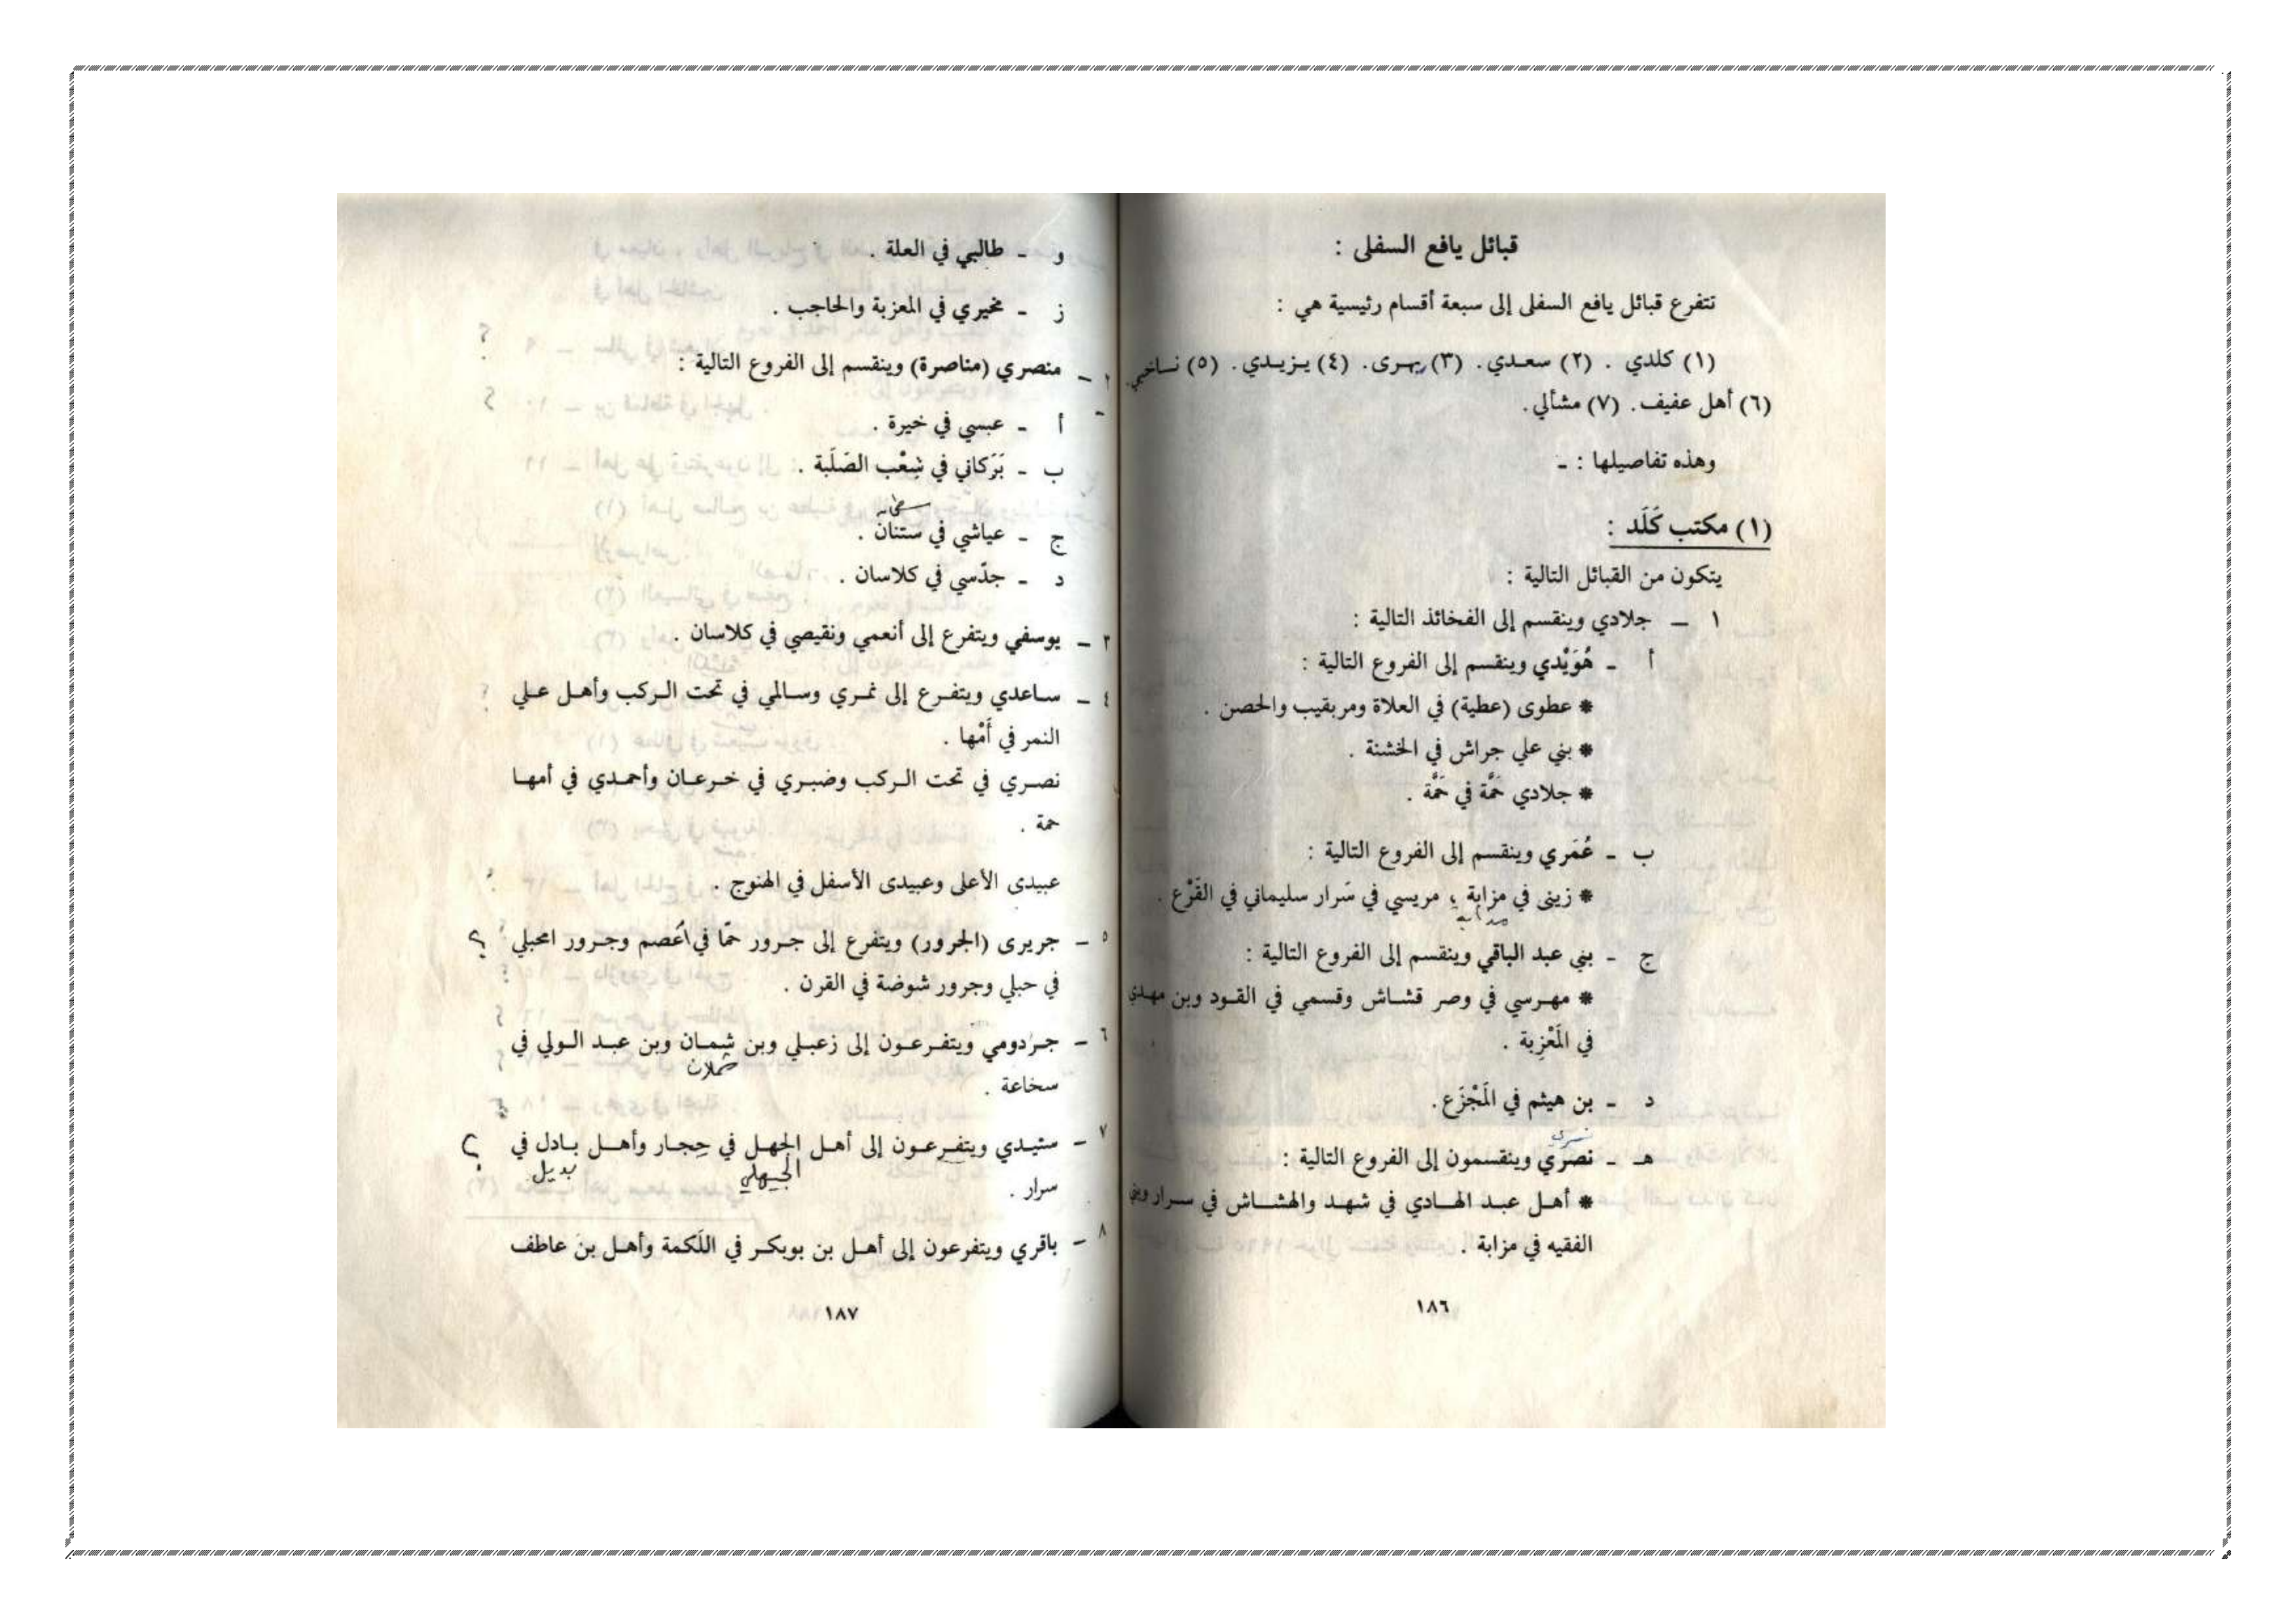 قبائل يافع السفلى :
تتفرع قبائل يافع السفلى إلى سبعة أقسام رئيسية هي :
(١) كلدي . (٢) سعدي. (٣) يهرى. (٤) يزيدي. (٥) ناخبي.
(٦) أهل عفيف. (٧) مشألي.
وهذه تفاصيلها : ـ
(١) مكتب كَلَد :
يتكون من القبائل التالية :
١ ـ جلادي وينقسم إلى الفخائذ التالية :
أ ـ هُوَيْدي وينقسم إلى الفروع التالية :
* عطوى (عطية) في العلاة ومربقيب والحصن .
* بني علي جراش في الخشنة .
* جلادي حَمَّة في حَمَّة .
ب ـ عُمَري وينقسم إلى الفروع التالية :
* زينى في مزابة ، مريسي في سَرار سليماني في القَرْع .
ج ـ بني عبد الباقي وينقسم إلى الفروع التالية :
* مهرسي في وصر قشاش وقسمي في القود وبن مهدي
في المَعْزِبة .
د ـ بن هيثم في المَجْزَع.
هـ ـ نصري وينقسمون إلى الفروع التالية :
* أهل عبد الهادي في شهد والهشاش في سرار وبني
الفقيه في مزابة .
١٨٦
و ـ طالبي في العلة .
ز ـ مخيري في المعزبة والحاجب .
٢ ـ منصري (مناصرة) وينقسم إلى الفروع التالية :
أ ـ عبسي في خيرة .
ب ـ بَرَكاني في شِعْب الصَلَبة .
ج ـ عياشي في ستنان .
د ـ جدّسي في كلاسان .
٣ ـ يوسفي ويتفرع إلى أنعمي ونقيصي في كلاسان .
٤ ـ ساعدي ويتفرع إلى نمري وسالمي في تحت الركب وأهل علي
النمر في أَمْها .
نصري في تحت الركب وضبري في خرعان وأحمدي في أمها
حمة .
عبيدى الأعلى وعبيدى الأسفل في الهنوج .
٥ ـ جريرى (الجرور) ويتفرع إلى جرور حمّا في أعصم وجرور امحبلي ؟
في حبلي وجرور شوضة في القرن .
٦ ـ جردومي ويتفرعون إلى زعبلي وبن شمان وبن عبد الولي في
شملان
سخاعة .
٧ ـ ستيدي ويتفرعون إلى أهل الجهل في حِجار وأهل بادل في ؟
الجيهلي بديل
سرار .
٨ ـ باقري ويتفرعون إلى أهل بن بوبكر في اللَكمة وأهل بن عاطف
١٨٧